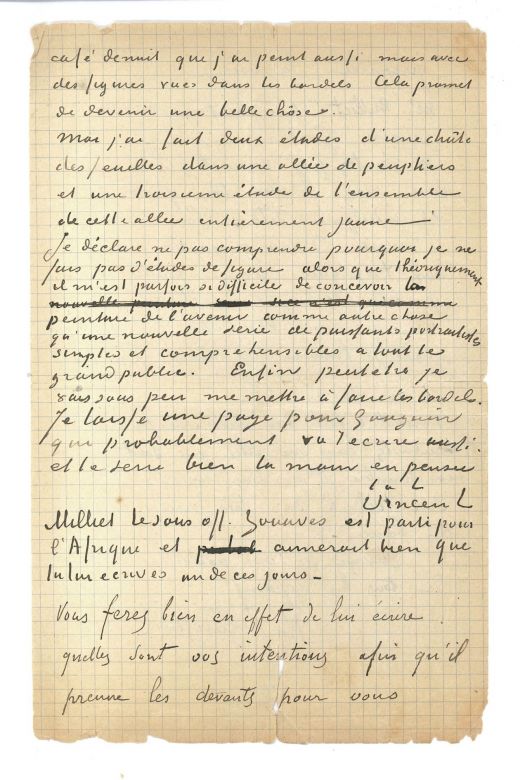 café de nuit que j'ai peint aussi mais avec
des figures vues dans les bordels Cela promet
de devenir une belle chôse.
Moi j'ai fait deux études d'une chûte
des feuilles dans une allée de peupliers
et une troisieme étude de l'ensemble
de cette allee entièrement jaune
Je déclare ne pas comprendre pourquoi je ne
fais pas d'études de figure alors que théoriquement
il m'est parfois si difficile de concevoir la
peinture de l'avenir comme autre chose
qu'une nouvelle serie de puissants portraitistes
simples et comprehensibles a tout le
grand public. Enfin peut etre je
vais sous peu me mettre à faire les bordels.
Je laisse une page pour Gauguin
qui probablement va t'ecrire aussi.
et te serre bien la main en pensée
t. à t.
Vincent
Milliet le sous off. Zouaves est parti pour
l'Afrique et aimerait bien que
tu lui ecrives un de ces jours_
Vous ferez bien en effet de lui écrire
quelles sont vos intentions afin qu'il
prenne les devants pour vous